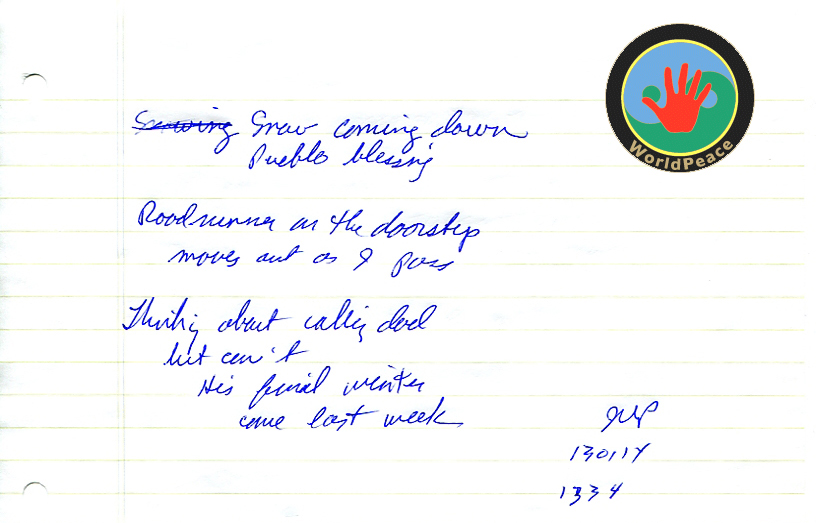 WorldPeace
Snowing Snow coming down
Pueblo blessing
Roadrunner on the doorstep
moves out as I pass
Thinking about calling dad
but can't
His final winter
came last week
JWP
130114
1334